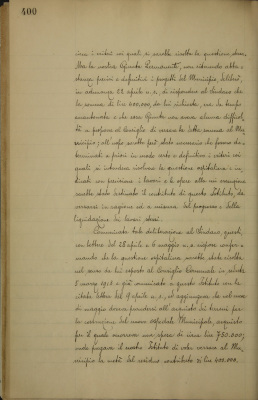 400
sieno i criteri coi quali si vorrebbe risolta la questione stessa.
Ma la nostra Giunta Permanente, non ritenendo abba-
stanza precisi e definitivi i progetti del Municipio, deliberò,
in adunanza 22 aprile u. s. di rispondere al Sindaco che
la somma di lire 400,000, da lui richiesta, era da tempo
accantonata e che essa Giunta non aveva alcuna difficol-
tà a proporre al Consiglio di versare la detta somma al Mu-
nicipio; all'uopo però sarebbe stato necessario che fossero de-
terminati a priori in modo certo e definitivo i criteri coi
quali si intendeva risolvere la questione ospitaliera e in-
dicati con precisione i lavori e le opere alle cui esecuzione
sarebbe stato destinato il contributo di questo Istituto, da
versarsi in ragione ed a misura del progresso e della
liquidazione dei lavori stessi.
Comunicata tale deliberazione al Sindaco, questi,
con lettere del 28 aprile e 6 maggio u. s. rispose confer-
mando che la questione ospitaliera sarebbe stata risolta
nel senso da lui esposto al Consiglio Comunale in seduta
8 marzo 1918 e già comunicato a questo Istituto con la
citata lettera del 9 aprile u. s., ed aggiungeva che nel mese
di maggio doveva procedersi all'acquisto dei terreni per
la costruzione del nuovo ospedale Municipale, acquisto
per il quale occorreva una spesa di circa lire 730.000;
onde pregava il nostro Istituto di voler versare al Mu-
nicipio la metà del residuo contributo di lire 400.000.